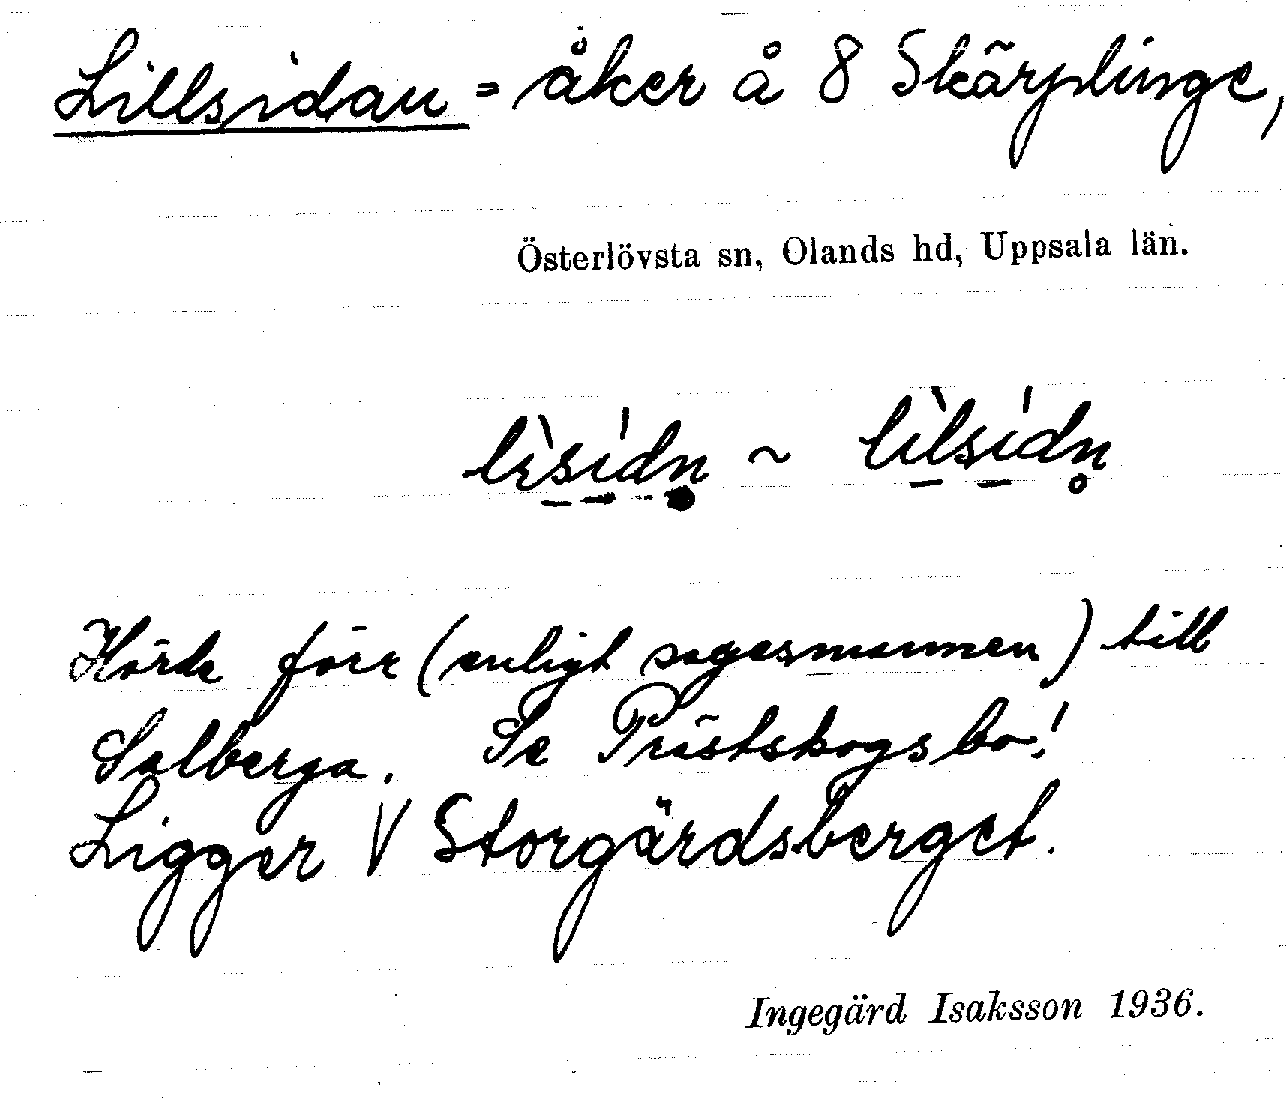 Lillsidan = åker å 8 Skärplinge,
Österlövsta sn, Olands hd, Uppsala län.
lisidn ~ lilsidn
Hörde förr (enligt sagesmannen) till
Salberga. Se Prästskogsbo!
Ligger V Storgärdsberget.
Ingegärd Isaksson 1936.